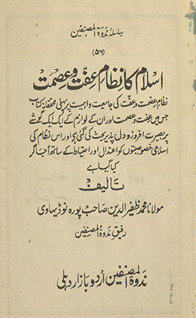 سلسلۂ ندوۃ المصنفین
(۵۶)
اسلام کا نظام عفت و عصمت
نظام عصمت و عفت کی جامعیت و اہمیت پر پہلی محققانہ کتاب
جس میں عفت و عصمت اور ان کے لوازم کے ایک ایک گوشے
پر بصیرت افروز و دل پذیر بحث کی گئی ہے اور اس نظام کی
اسلامی خصوصیتوں کو اعتدال اور احتیاط کے ساتھ اجاگر
کیا گیا ہے
تالیف
مولانا محمد ظفیر الدین صاحب پورہ نوڈیہاوی
رفیق ندوۃ المصنفین
ندوۃ المصنفین اردو بازار دہلی